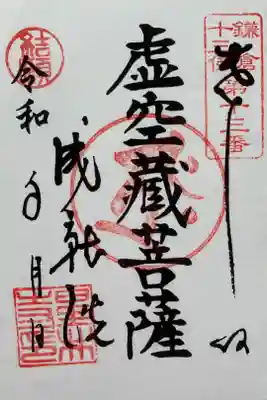 鎌倉
十三佛第十三番
奉拝
虚空蔵菩薩
成就院
結願
令和 年 月 日